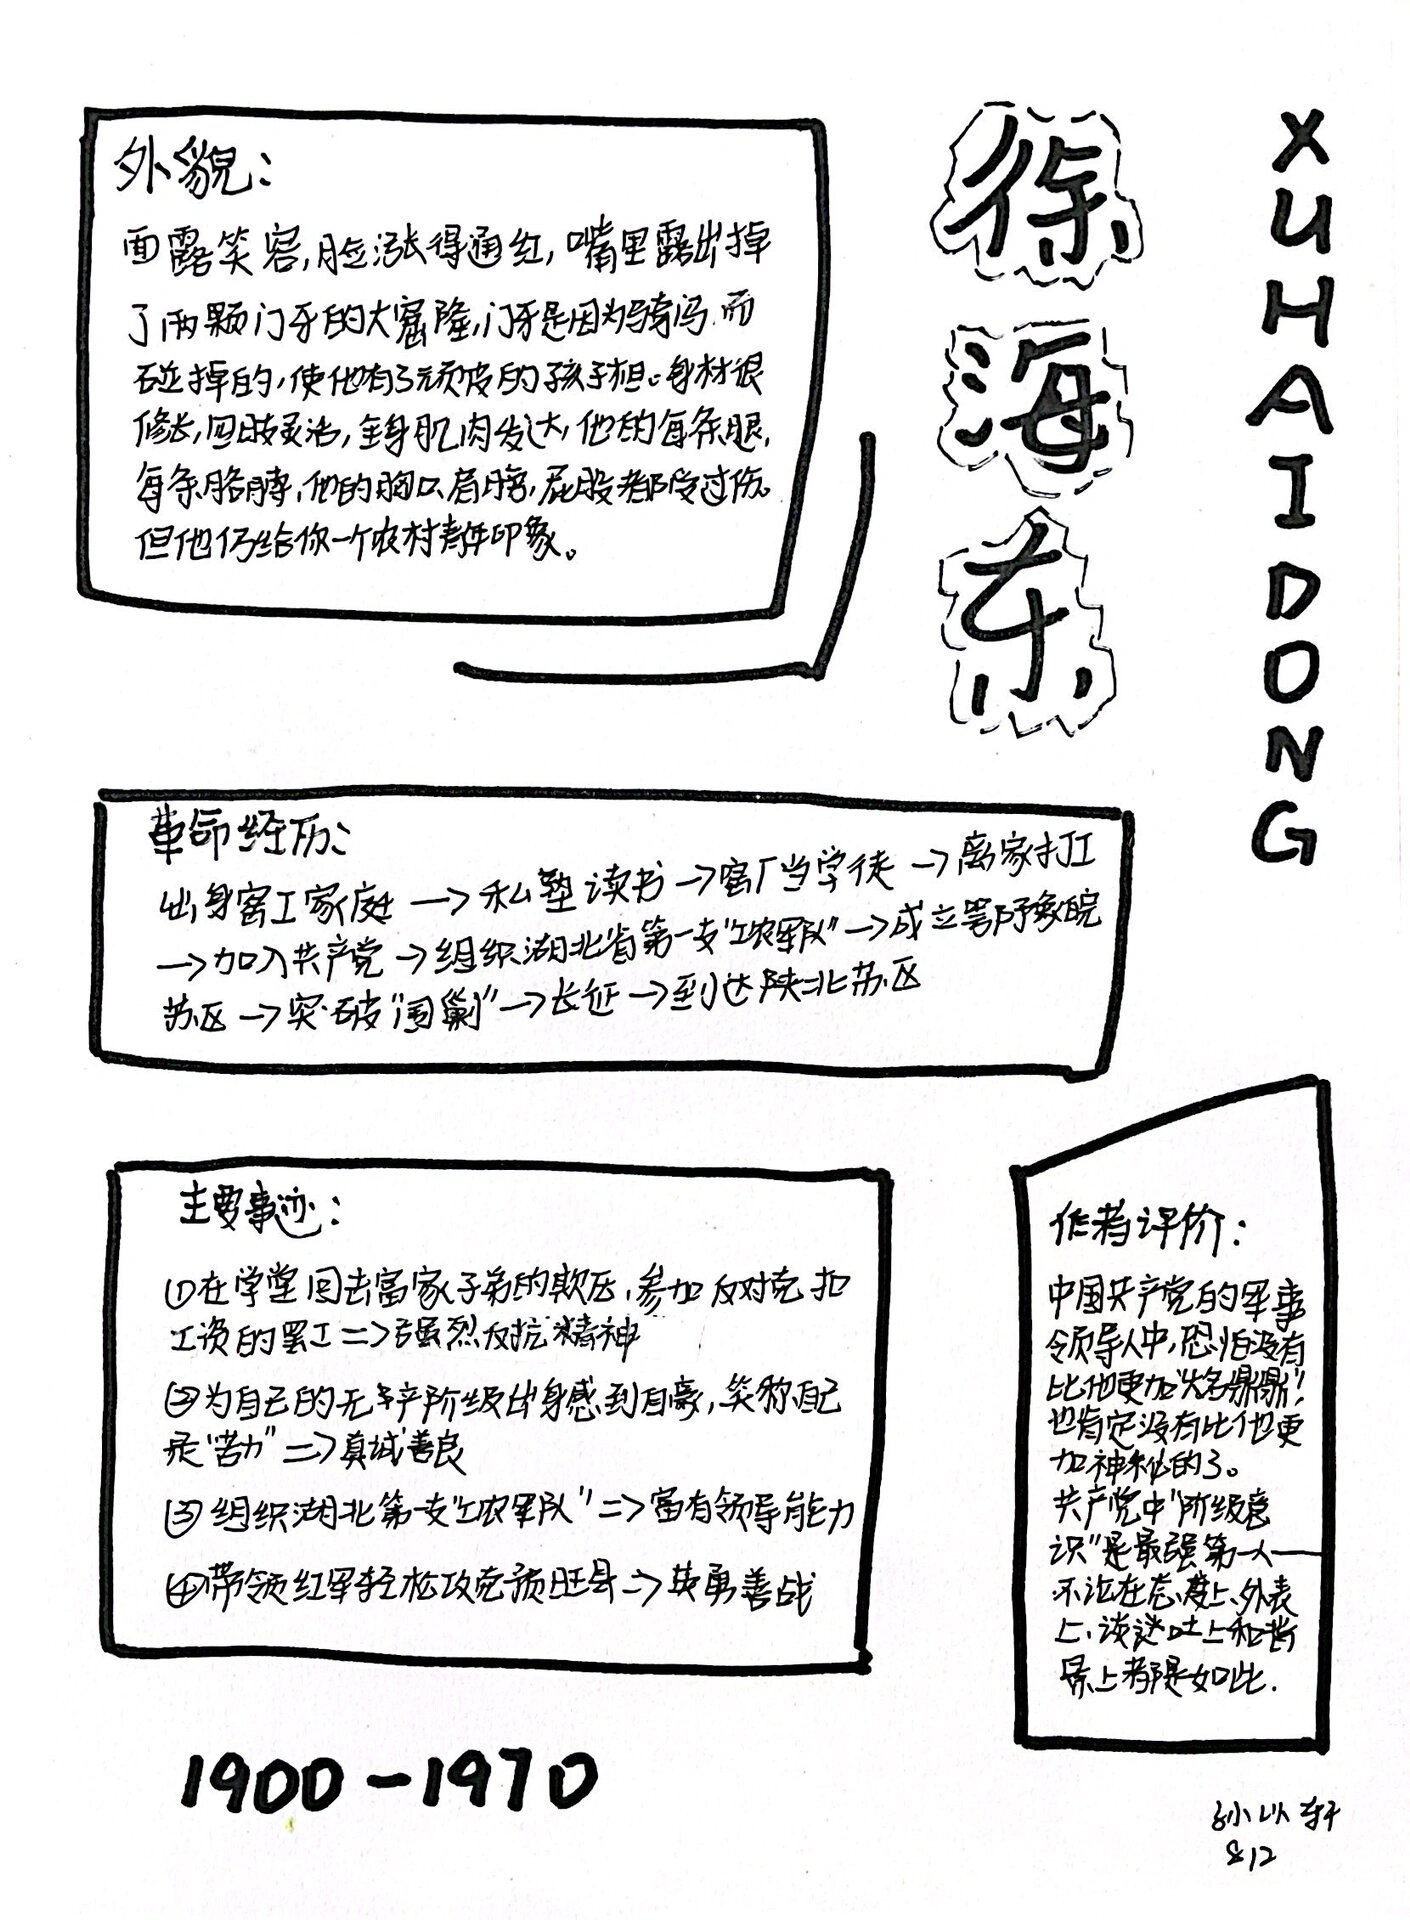 徐海东
XUHAIDONG
外貌:
面露笑容,脸涨得通红,嘴里露出掉
了两颗门牙的大窟隆,门牙是因为骑马而
碰掉的,使他有了顽皮的孩子相。身材很
修长,四肢灵活,全身肌肉发达,他的每条腿,
每条胳膊,他的胸口、肩膀,屁股都受过伤。
但他仍给你一个农村青年印象。
革命经历:
出身窑工家庭→私塾读书→窑厂当学徒→离家打工
→加入共产党→组织湖北省第一支"工农军队"→成立鄂豫皖
苏区→突破"围剿"→长征→到达陕北苏区
主要事迹:
①在学堂回击富家子弟的欺压,参加反对克扣
工资的罢工=>强烈反抗精神
②为自己的无产阶级出身感到自豪,笑称自己
是"苦力"=>真诚善良
③组织湖北第一支"工农军队"=>富有领导能力
④带领红军轻松攻克预旺县=>英勇善战
作者评价:
中国共产党的军事
领导人中,恐怕没有
比他更加"大名鼎鼎"!
也肯定没有比他更
加神秘的了。
共产党中"阶级意
识"是最强第一人——
不论在态度上、外表
上、谈吐上和背
景上都是如此.
1900-1970
孙以轩
812